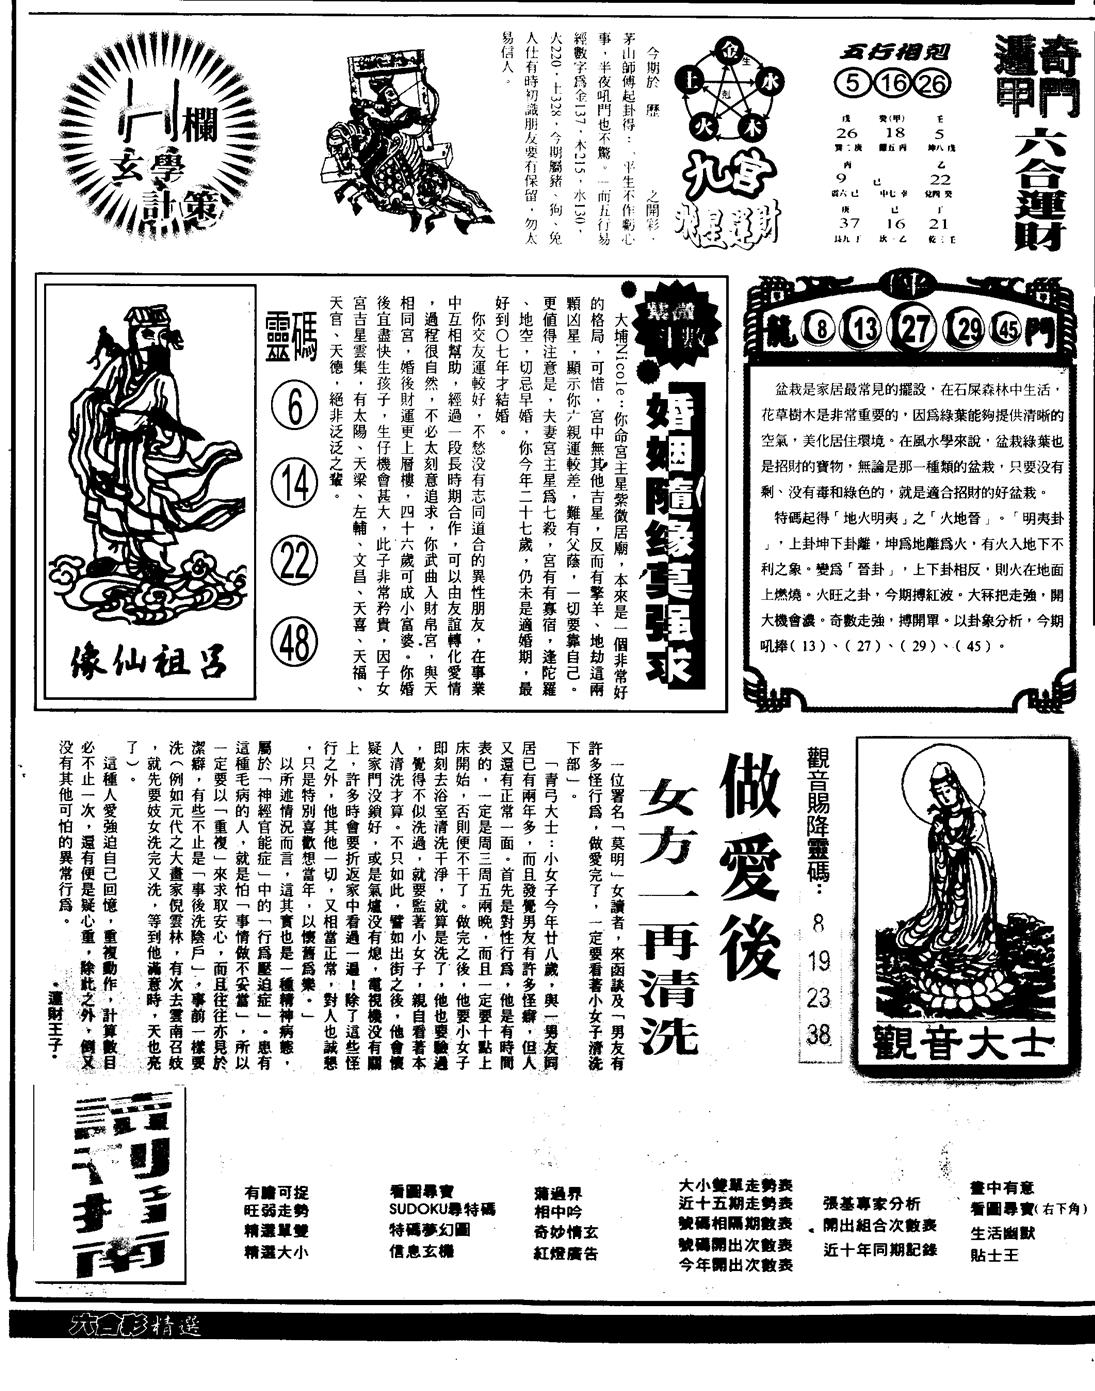 奇門
遁甲
六合運財
五行相剋
5 16 26
戊
26
癸(甲)
18
壬
5
丙
9
乙
22
庚
37
己
16
丁
21
金
水
木
火
土
生
剋
九宮
飛星運財
今期於 歷 之開彩,
茅山師傅起卦得:、平生不作虧心
事,半夜吼門也不驚。一而五行易
經數字爲金137,木215,水130,
火220,土328,今期屬豬、狗、兔
人仕有時初識朋友要有保留,勿太
易信人。
欄
玄學
計策
龍 8 13 27 29 45 門
盆栽是家居最常見的擺設,在石屎森林中生活,
花草樹木是非常重要的,因爲綠葉能夠提供清晰的
空氣,美化居住環境。在風水學來說,盆栽綠葉也
是招財的寶物,無論是那一種類的盆栽,只要没有
剩、没有毒和綠色的,就是適合招財的好盆栽。
特碼起得「地火明夷」之「火地晉」。「明夷卦
」,上卦坤下卦離,坤爲地離爲火,有火入地下不
利之象。變爲「晉卦」,上下卦相反,則火在地面
上燃燒。火旺之卦,今期搏紅波。大冧把走強,開
大機會濃。奇數走強,搏開單。以卦象分析,今期
吼捧(13)、(27)、(29)、(45)。
紫微
斗數
婚姻隨缘莫强求
大埔Nicole:你命宮主星紫微居廟,本來是一個非常好
的格局,可惜,宮中無其他吉星,反而有擎羊、地劫這兩
顆凶星,顯示你六親運較差,難有父蔭,一切要靠自己。
更值得注意是,夫妻宮主星爲七殺,宮有有寡宿,逢陀羅
、地空,切忌早婚,你今年二十七歲,仍未是適婚期,最
好到〇七年才結婚。
你交友運較好,不愁没有志同道合的異性朋友,在事業
中互相幫助,經過一段長時期合作,可以由友誼轉化愛情
,過程很自然,不必太刻意追求,你武曲入財帛宮,與天
相同宮,婚後財運更上層樓,四十六歲可成小富婆。你婚
後宜盡快生孩子,生仔機會甚大,此子非常矜貴,因子女
宮吉星雲集,有太陽、天梁、左輔、文昌、天喜、天福、
天官、天德,絕非泛泛之輩。
靈碼
6
14
22
48
呂祖仙像
觀音大士
觀音賜降靈碼:
8
19
23
38
做愛後
女方一再清洗
一位署名「莫明」女讀者,來函談及「男友有
許多怪行爲,做愛完了,一定要看著小女子清洗
下部」。
「青弓大士:小女子今年廿八歲,與一男友同
居已有兩年多,而且發覺男友有許多怪癖,但人
又還有正常一面。首先是對性行爲,他是有時間
表的,一定是周三周五兩晚,而且一定要十點上
床開始,否則便不干了。做完之後,他要小女子
即刻去浴室清洗干淨,就算是洗了,他也要驗過
,覺得不似洗過,就要監著小女子,親自看著本
人清洗才算。不只如此,譬如出街之後,他會懷
疑家門没鎖好,或是氣爐没有熄,電視機没有關
上,許多時會要折返家中看過一遍!除了這些怪
行之外,他其他一切,又相當正常,對人也誠懇
,只是特別喜歡想當年,以懷舊爲樂。」
以所述情況而言,這其實也是一種精神病態,
屬於「神經官能症」中的「行爲壓迫症」。患有
這種毛病的人,就是怕「事情做不妥當」,所以
一定要以「重複」來求取安心,而且往往亦見於
潔癖,有些不止是「事後洗陰戶」,事前一樣要
洗(例如元代之大畫家倪雲林,有次去雲南召妓
,就先要妓女洗完又洗,等到他滿意時,天也亮
了)。
這種人愛強迫自己回憶,重複動作,計算數目
必不止一次,還有便是疑心重,除此之外,倒又
没有其他可怕的異常行爲。
·運財王子·
讀刊指南
有膽可捉
旺弱走勢
精選單雙
精選大小
看圖尋寶
SUDOKU尋特碼
特碼夢幻圖
信息玄機
蒲過界
相中吟
奇妙情玄
紅燈廣告
大小雙單走勢表
近十五期走勢表
號碼相隔期數表
號碼開出次數表
今年開出次數表
張基專家分析
開出組合次數表
近十年同期記錄
畫中有意
看圖尋寶(右下角)
生活幽默
貼士王
六合彩精選